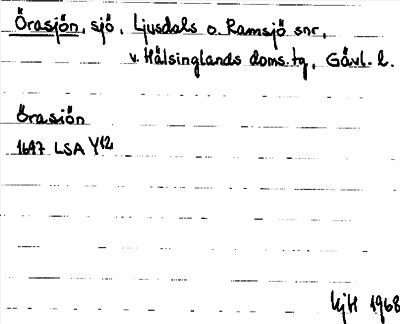 Örasjön, sjö, Ljusdals o. Ramsjö snr,
v. Hälsinglands doms.tg, Gävl. l.
Örasiön
1647 LSA Y12
HjH 1968